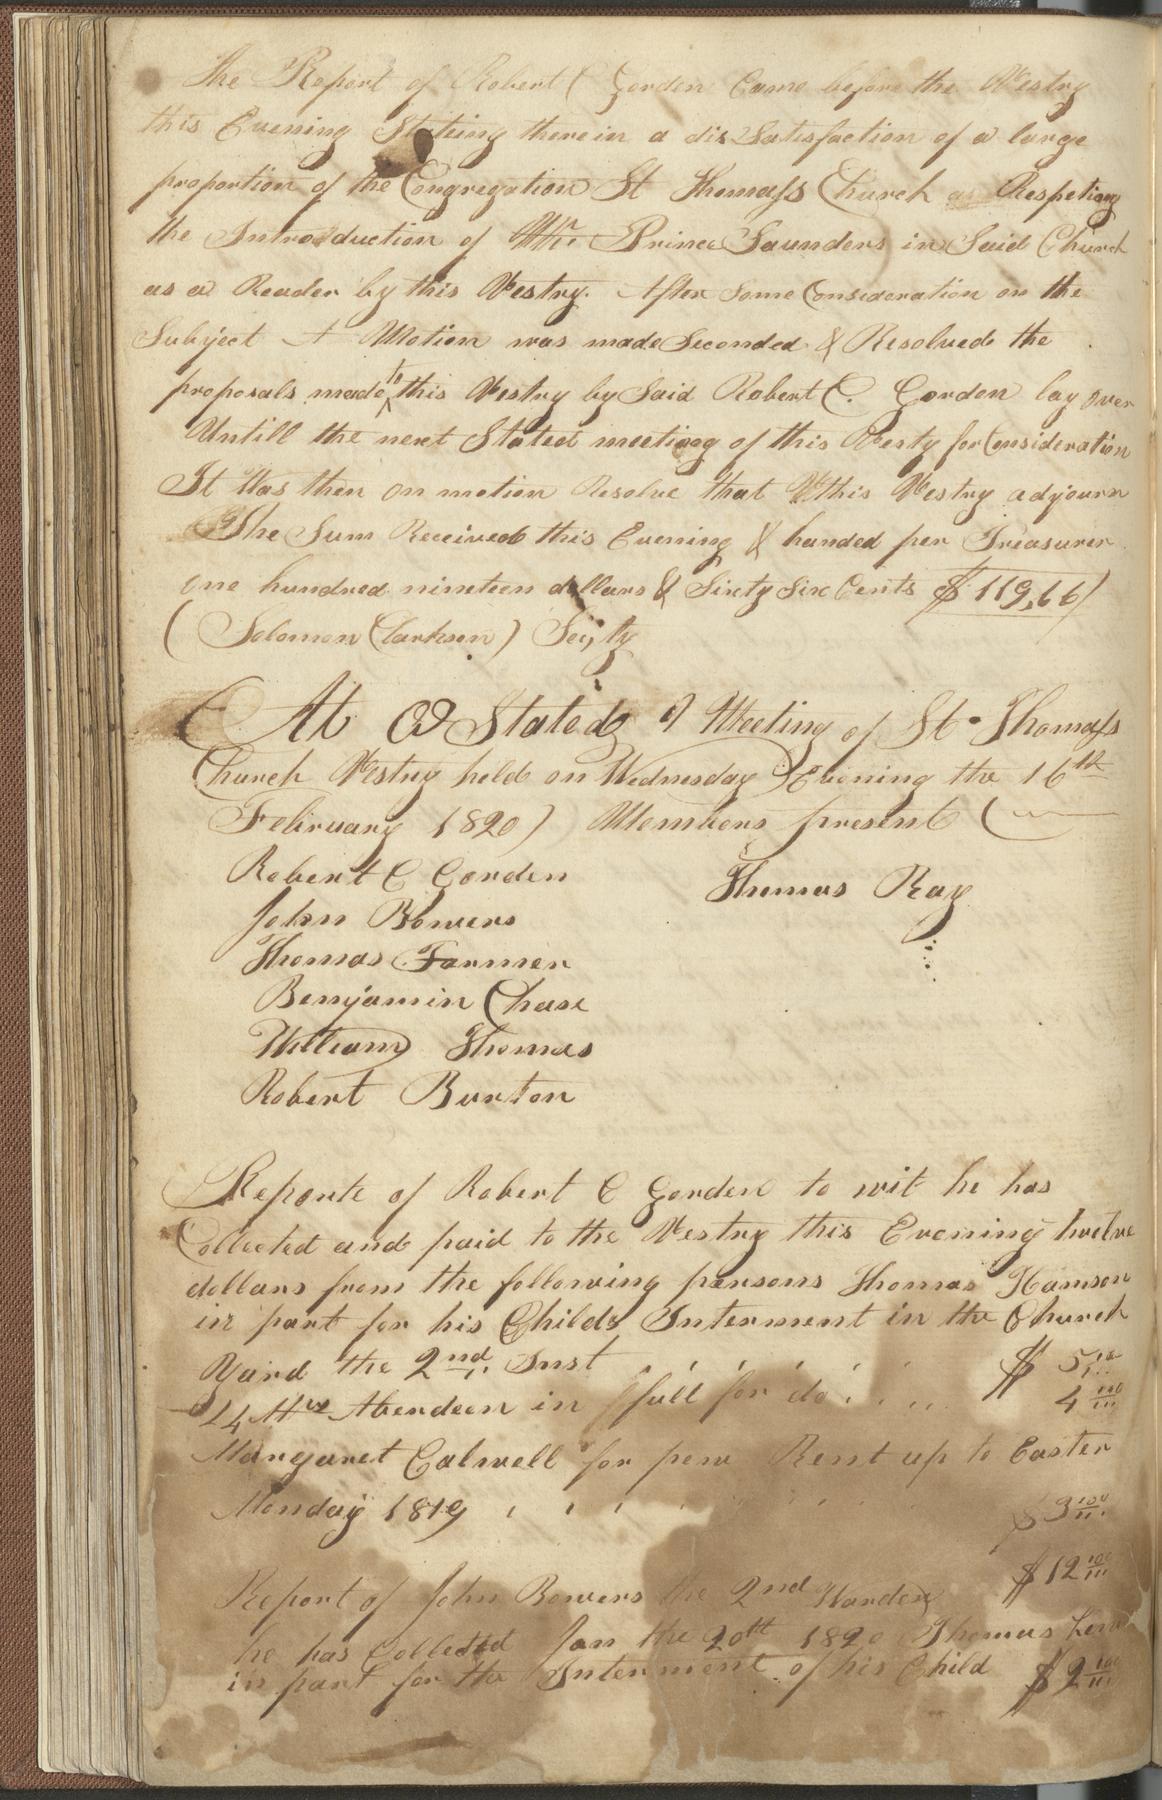 The Report of Robert C Gorden Came before the Vestry
this Evening Stateing there in a dis Satisfaction of a large
proportion of the Congregation St Thomass Church as Respeting
the Introduction of Mr Prince Saunders in Said Church
as a Reader by this Vestry. After Some Consideration on the
Subject A Motion was made Seconded & Resolved the
proposals made to this Vestry by Said Robert C. Gordon lay over
Untill the next Stated meeting of this Vesty for Consideration
It Was then on motion Resolve that this Vestry adjourn
The Sum Received this Evening & handed per Treasurer
one hundred nineteen dollars & Sixty Six Cents $ 119,66)
(Solomon Clarkson) Secty
At a Stated Meeting of St. Thomass
Church Vestry held on Wednesday Evening the 16th
February 1820) Members present (
Robert C Gorden
Thomas Ray
John Bowers
Thomas Farmer
Benjamin Chase
William Thomas
Robert Burton
Reporte of Robert C Gorden to wit he has
Collected and paid to the Vestry this Evening twelve
dollars from the following persons Thomas Hamson
in part for his Childs Interment in the Church
Yard the 2nd Inst $ 5
14 Mrs Aberdeen in full for do 4
Margaret Calwell for pew Rent up to Easter
Monday 1819 $ 3
$ 12
Report of John Bowers the 2nd Warden
he has Collected Jan the 20th 1820 Thomas
in part for the Interment of his Child $ 2